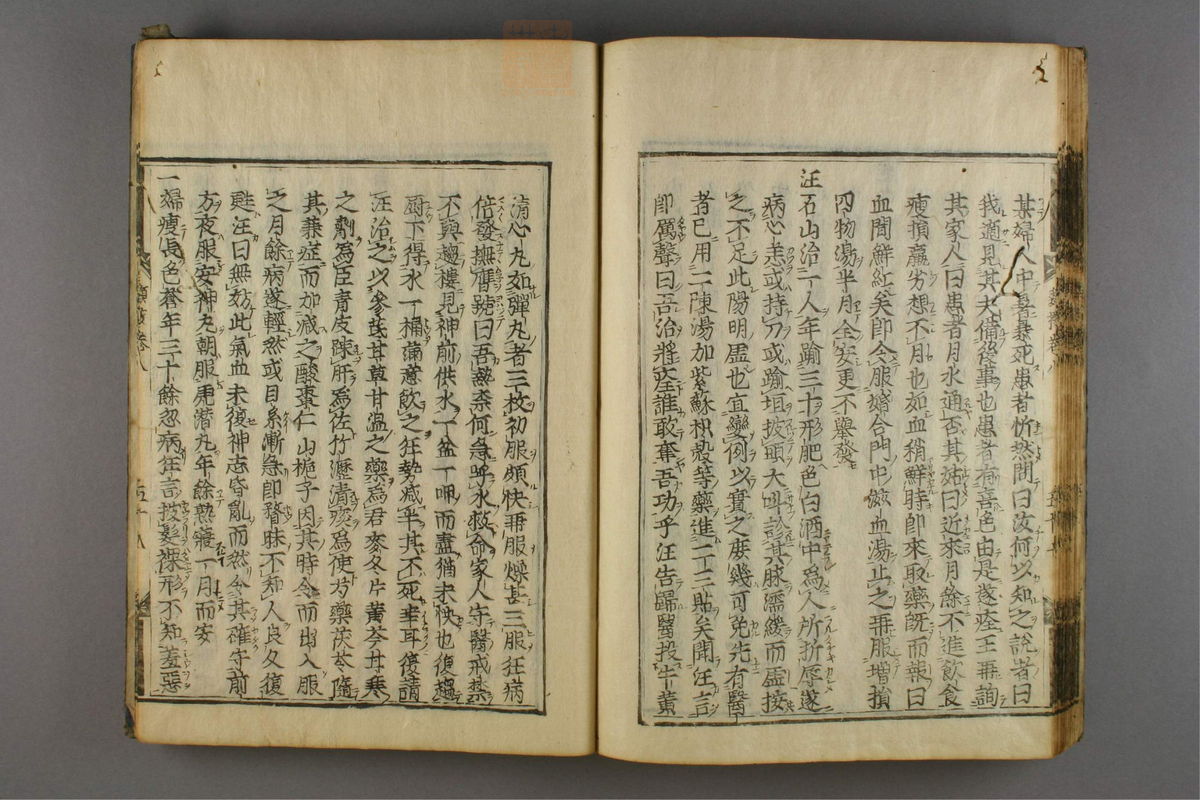 某婦人中暑暴死患者忻然問曰汝何以知之說者曰
我適見其夫備後事也患者有喜色由是遂痊王再詢
其家人曰患者月水通否其姑曰近來月餘不進飲食
瘦損羸劣想不月也如血稍鮮時即來取藥既而報曰
血間鮮紅矣即令服婚合門中滋血湯止之再服增損
四物湯半月全安更不舉發
汪石山治一人年踰三十形肥色白酒中為人所折辱遂
病心恙或持刀或踰垣披頭大叫診其脉濡緩而虛按
之不足此陽明虛也宜變例以實之庶幾可免先有醫
者已用二陳湯加紫蘇枳殼等藥進二三貼矣聞汪言
即厲聲曰吾治將痊誰敢奪吾功乎汪告歸醫投牛黃
清心丸如彈丸者三枚初服頗快再服燥甚三服狂病
倍發撫膺號曰吾熱奈何急呼水救命家人守醫戒禁
不與趨樓見神前供水一盆一呷而盡猶未快也復趨
厨下得水一桶滿意飲之狂勢減半其不死幸耳復請
汪治之以參芪甘草甘溫之藥為君麥冬片黃芩甘寒
之劑為臣青皮踈肝為佐竹瀝清痰為使芍藥茯苓隨
其兼症而加減之酸棗仁山梔子因其時令而出入服
之月餘病遂輕然或目系漸急即瞀昧不知人良久復
甦汪曰無妨此氣血未復神志昏亂而然令其確守前
方夜服安神丸朝服虎潛丸年餘熱寢一月而安
一婦瘦長色蒼年三十餘忽病狂言披髮裸形不知羞惡